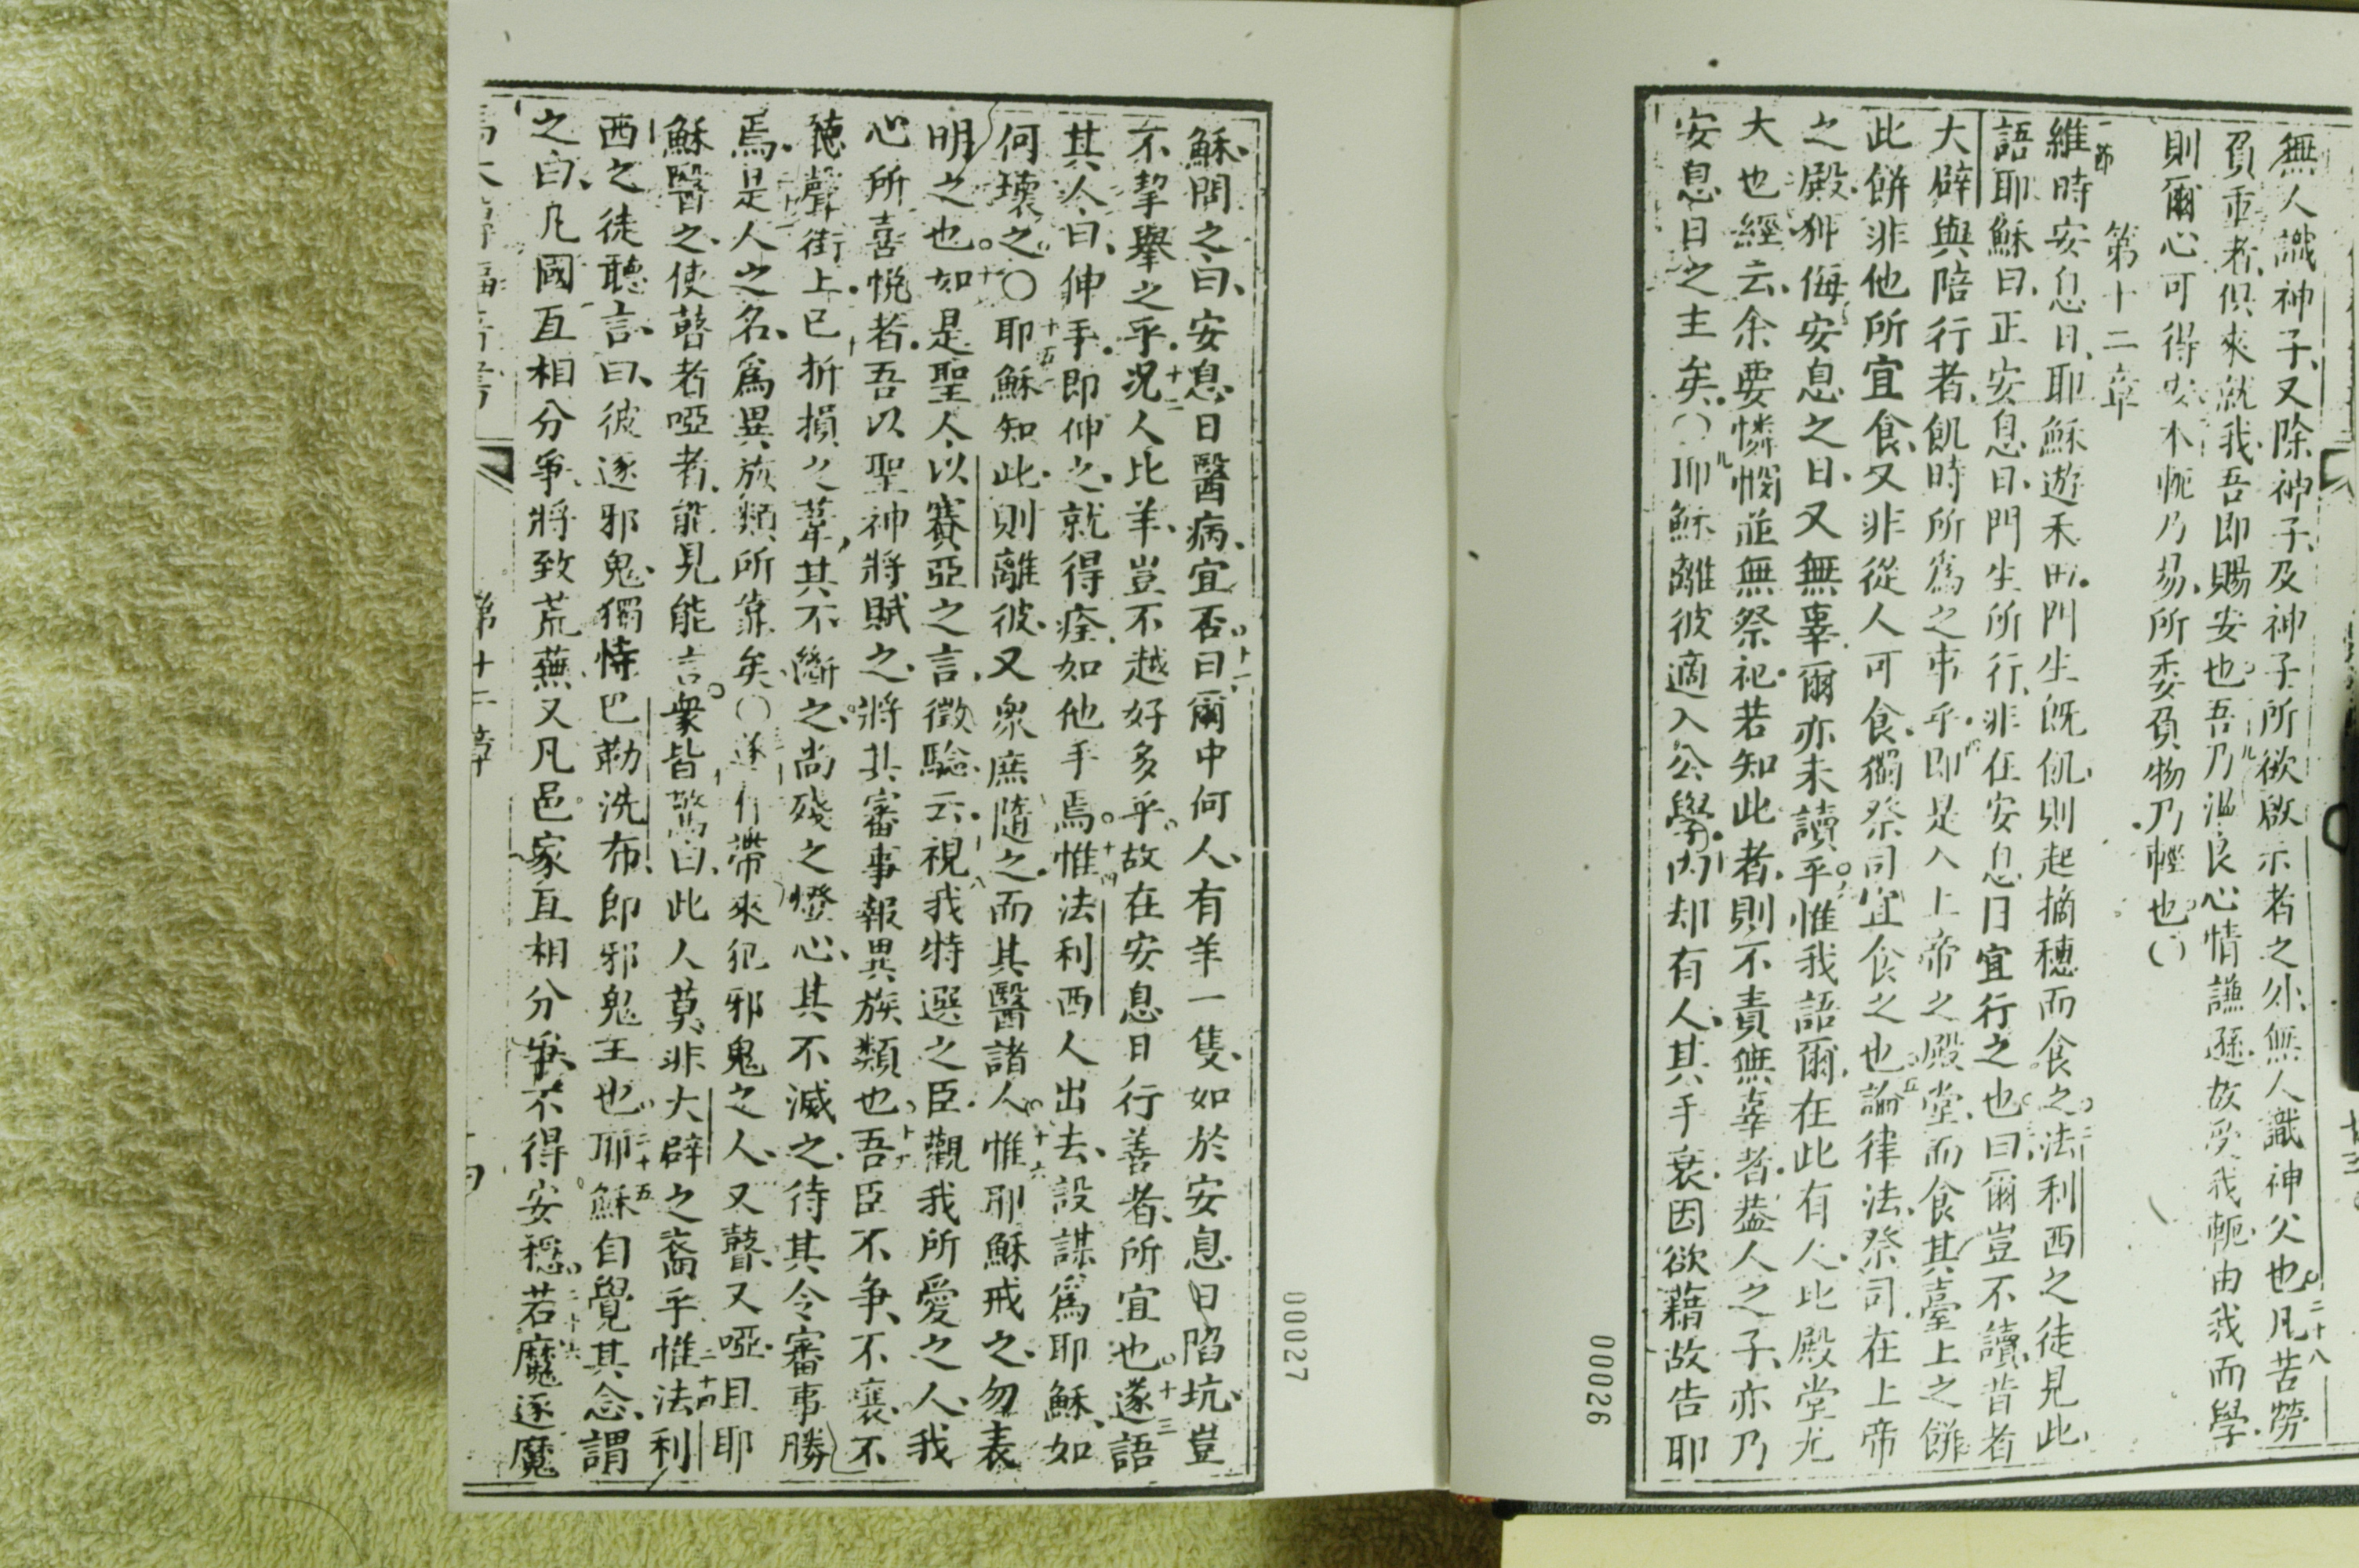 無人識神子、又除神子、及神子所欲啟示者之外、無人識神父也。二十八凡苦勞
負重者、俱來就我、吾即賜安也。吾乃溫良心情謙遜、故受我軛、由我而學、
則爾心可得安、本軛乃易、所委負物乃輕也。〇
第十二章
一節維時安息日、耶穌遊禾田、門生既飢、則起摘穗而食之。二法利西之徒見此、
語耶穌曰、正安息日、門生所行、非在安息日宜行之也。曰爾豈不讀、昔者
大辟與陪行者、飢時所為之事乎、即是入上帝之殿堂、而食其臺上之餅
此餅非他所宜食、又非從人可食、獨祭司宜食之也。五論律法、祭司在上帝
之殿、狎侮安息之日、又無辜爾亦未讀乎。惟我語爾、在此有人、比殿堂尤
大也、經云、余要憐憫並無祭祀、若知此者、則不責無辜者、蓋人之子、亦乃
安息日之主矣。〇耶穌離彼適入公學、內却有人、其手衰、因欲藉故告耶
00026
00027
穌問之曰、安息日醫病、宜否。十一曰爾中何人、有羊一隻、如於安息日陷坑、豈
不挈舉之乎。十二況人比羊、豈不越好多乎、故在安息日行善者、所宜也。十三遂語
其人曰、伸手、即伸之、就得痊、如他手焉。十四惟法利西人出去、設謀為耶穌、如
何壞之。〇十五耶穌知此、則離彼、又衆庶隨之、而其醫諸人、十六惟耶穌戒之、勿表
明之也。十七如是聖人以賽亞之言、徵驗云、視我特選之臣、觀我所愛之人、我
心所喜悅者、吾以聖神將賦之、將其審事報異族類也。十九吾臣不爭、不褒、不
聽聲街上、已折損之葦、其不斷之、尚殘之燈心、其不滅之、待其令審事勝
焉、是人之名、為異族類所靠矣。〇遂有帶來犯邪鬼之人、又瞽、又啞、且耶
穌醫之、使瞽者啞者、能見能言。衆皆驚曰、此人莫非大辟之裔乎。二十四惟法利
西之徒聽言、曰、彼逐邪鬼、獨恃巴勒洗布、即邪鬼王也。二十五耶穌自覺其念、謂
之曰、凡國互相分爭、將致荒蕪、又凡邑家互相分爭、不得安穩。二十六若魔逐魔
第十二章